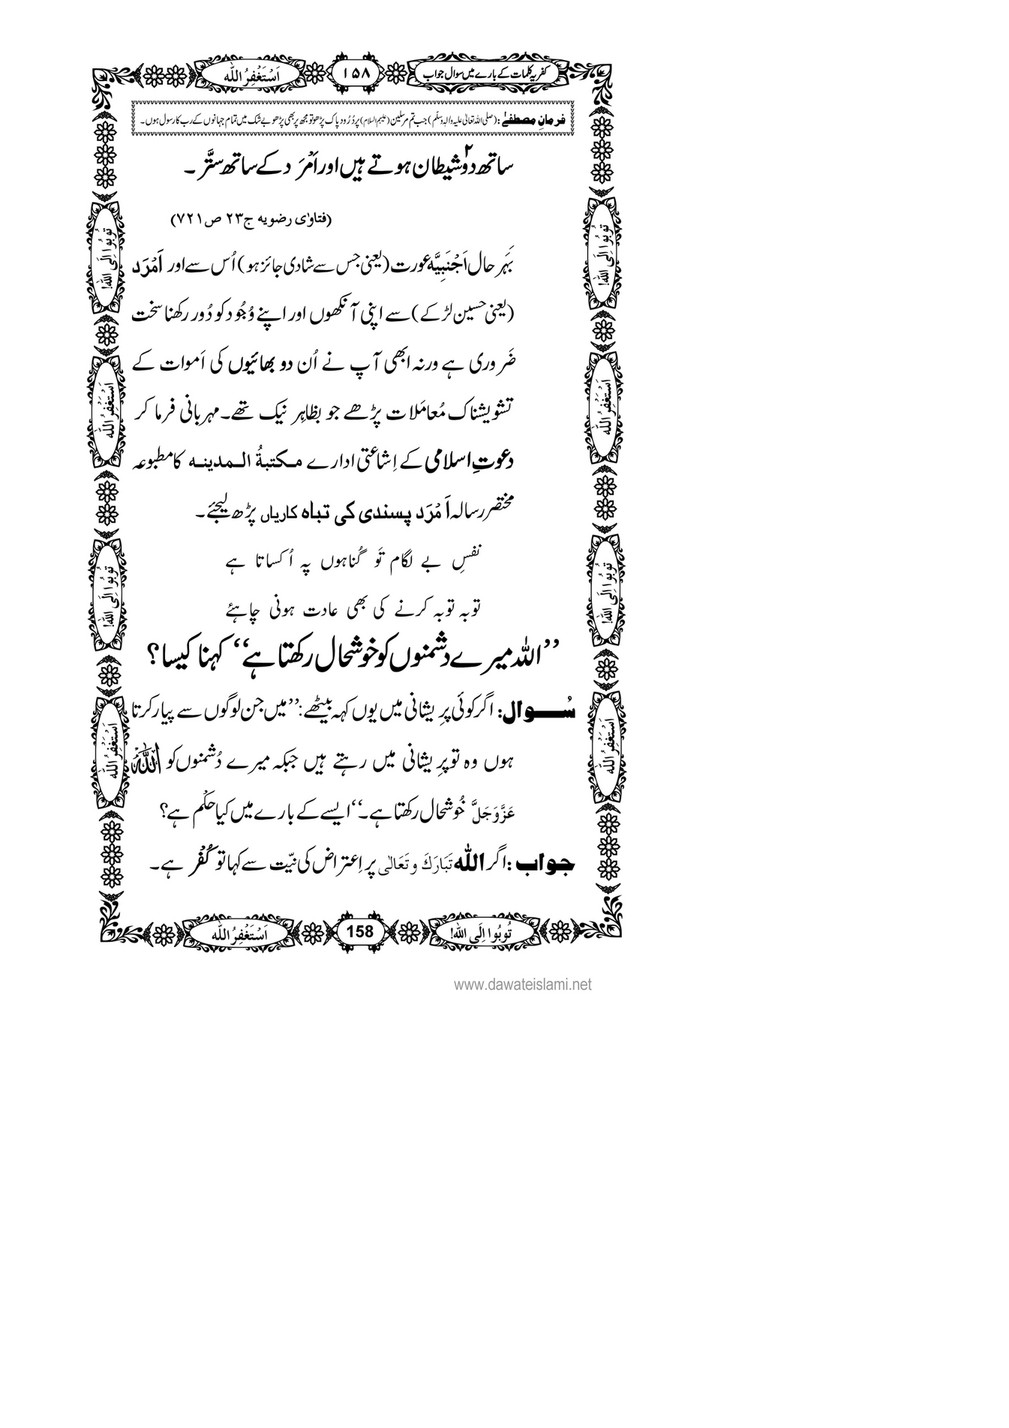 کفریہ کلمات کے بارے میں سوال جواب
۱۵۸
اَسْتَغْفِرُاللّٰه
فرمانِ مصطفےٰ : (صلی اللہ تعالیٰ علیہ والہ وسلم) جب تم مرسلین (علیہم السلام) پر دُرُود پاک پڑھو تو مجھ پر بھی پڑھو بے شک میں تمام جہانوں کے رب کا رسول ہوں۔
ساتھ دو۲ شیطان ہوتے ہیں اور اَمْرَد کے ساتھ ستَّر ۔
(فتاوٰی رضویہ ج۲۳ ص۷۲۱)
بَہَر حال اَجْنَبِیَّہ عورت (یعنی جس سے شادی جائز ہو) اُس سے اور اَمْرَد
(یعنی حسین لڑکے) سے اپنی آنکھوں اور اپنے وُجُود کو دُور رکھنا سخت
ضَروری ہے ورنہ ابھی آپ نے اُن دو بھائیوں کی اَموات کے
تشویشناک مُعامَلات پڑھے جو بظاہِر نیک تھے۔ مہربانی فرما کر
دعوتِ اسلامی کے اِشاعتی ادارے مکتبۃُ المدینہ کا مطبوعہ
مختصر رسالہ اَمْرَد پسندی کی تباہ کاریاں پڑھ لیجئے ۔
نفسِ بے لگام تَو گُناہوں پہ اُکساتا ہے
توبہ توبہ کرنے کی بھی عادت ہونی چاہئے
’’اللہ میرے دشمنوں کو خوشحال رکھتا ہے‘‘ کہنا کیسا؟
سُوال: اگر کوئی پریشانی میں یوں کہہ بیٹھے: ’’میں جن لوگوں سے پیار کرتا
ہوں وہ تو پریشانی میں رہتے ہیں جبکہ میرے دُشمنوں کو اللہ
عَزَّوَجَلَّ خُوشحال رکھتا ہے۔‘‘ ایسے کے بارے میں کیا حُکْم ہے؟
جواب: اگر اللہ تَبَارَكَ وتَعَالٰی پر اِعتراض کی نیّت سے کہا تو کُفْر ہے۔
تُوبُوا اِلَی اللّٰه!
اَسْتَغْفِرُاللّٰه
تُوبُوا اِلَی اللّٰه!
اَسْتَغْفِرُاللّٰه
تُوبُوا اِلَی اللّٰه!
اَسْتَغْفِرُاللّٰه
تُوبُوا اِلَی اللّٰه!
اَسْتَغْفِرُاللّٰه
تُوبُوا اِلَی اللّٰه!
158
اَسْتَغْفِرُاللّٰه
www.dawateislami.net